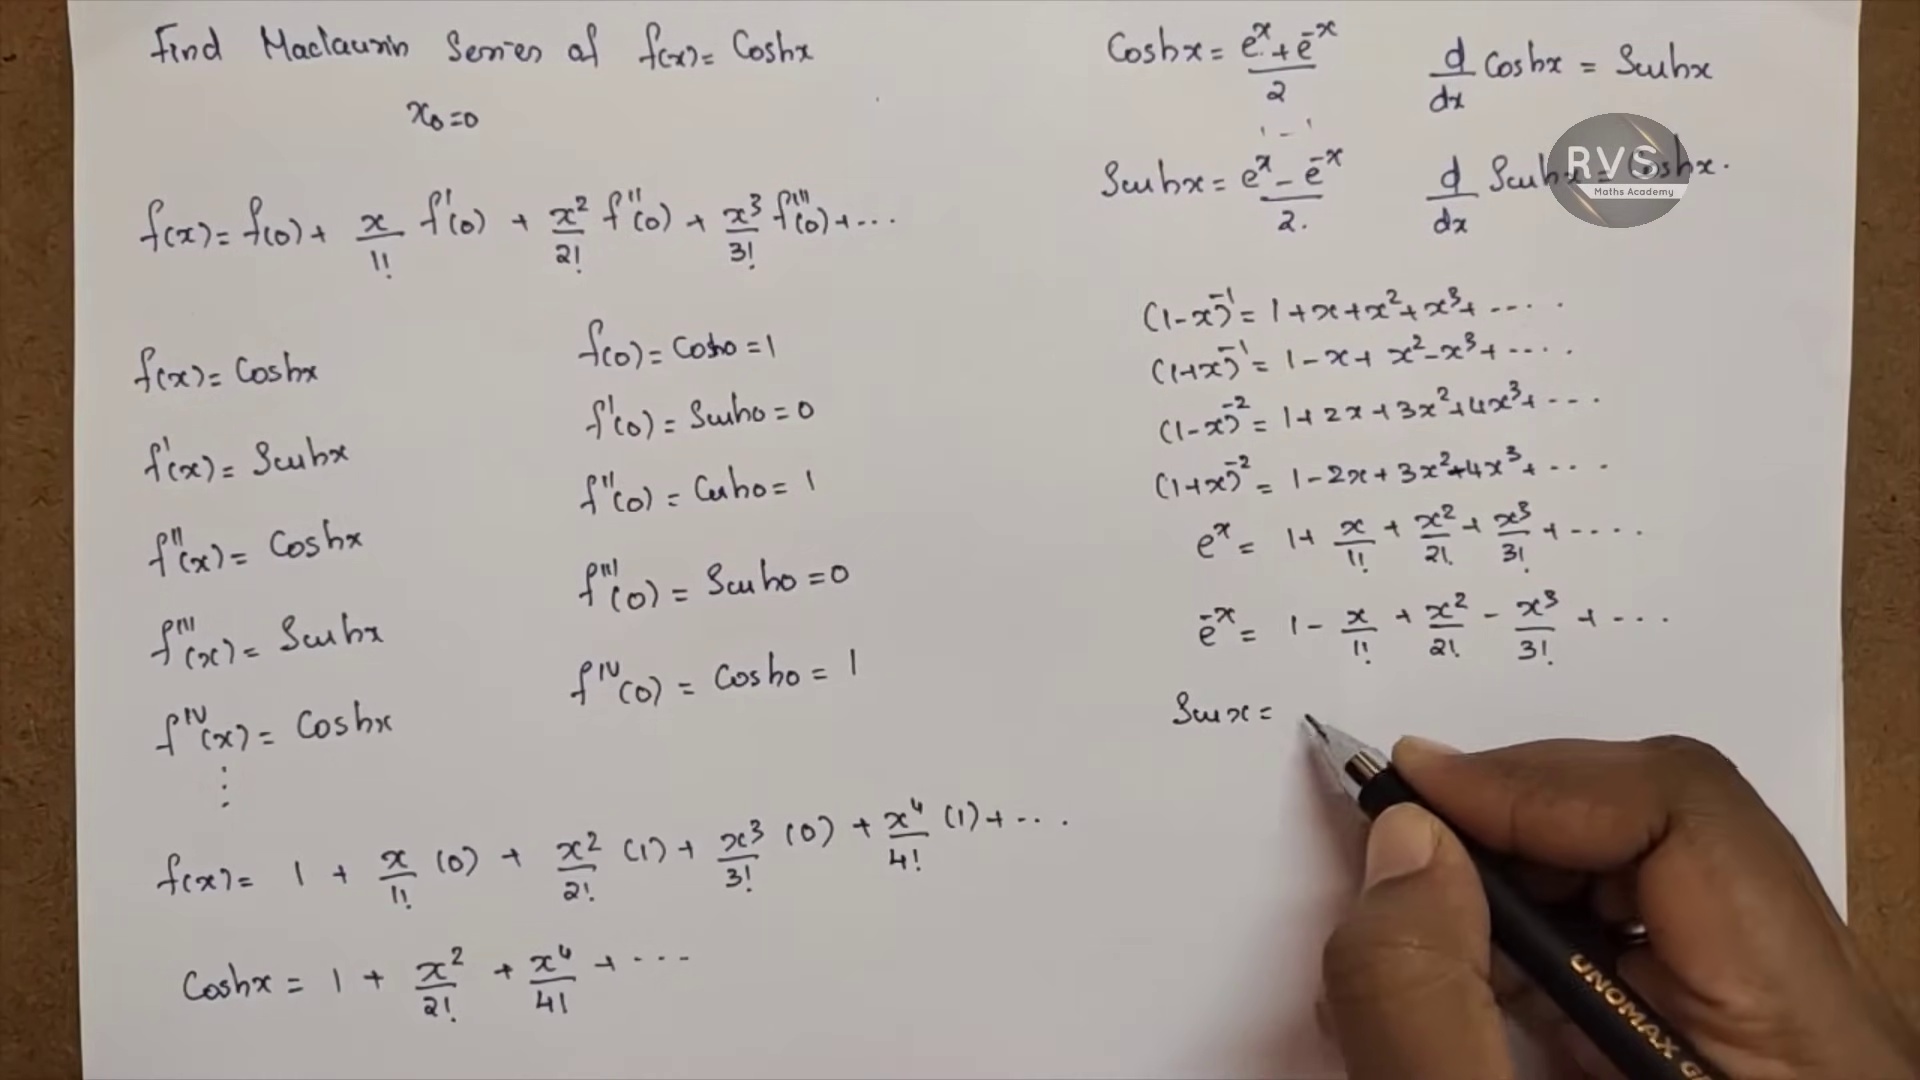 Find Maclaurin Series of f(x) = Coshx
x₀=0
f(x) = f(0) + x/1! f'(0) + x²/2! f''(0) + x³/3! f'''(0) + ...
f(x) = Coshx
f'(x) = Sinhx
f''(x) = Coshx
f'''(x) = Sinhx
f^IV(x) = Coshx
⋮
f(0) = Cosh0 = 1
f'(0) = Sinh0 = 0
f''(0) = Cosh0 = 1
f'''(0) = Sinh0 = 0
f^IV(0) = Cosh0 = 1
f(x) = 1 + x/1! (0) + x²/2! (1) + x³/3! (0) + x⁴/4! (1) + ...
Coshx = 1 + x²/2! + x⁴/4! + ...
Coshx = (e^x + e^-x)/2
d/dx Coshx = Sinhx
Sinhx = (e^x - e^-x)/2.
d/dx Sinhx = Coshx.
RVS
Maths Academy
(1-x)^-1 = 1+x+x²+x³+ ....
(1+x)^-1 = 1-x+x²-x³+ ....
(1-x)^-2 = 1+2x+3x²+4x³+ ...
(1+x)^-2 = 1-2x+3x²-4x³+ ...
e^x = 1+ x/1! + x²/2! + x³/3! + ....
e^-x = 1 - x/1! + x²/2! - x³/3! + ...
Sinx =
UNOMAX